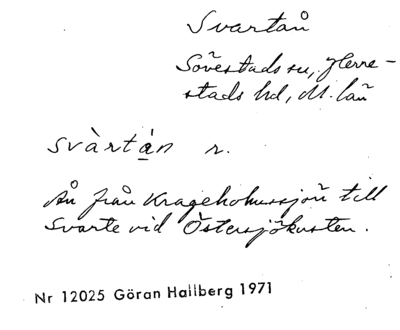 Svartån
Sövestads sn, Herre-
stads hd, M. län
svàrtán r.
Ån från Krageholmssjön till
Svarte vid Östersjökusten.
Nr 12025 Göran Hallberg 1971